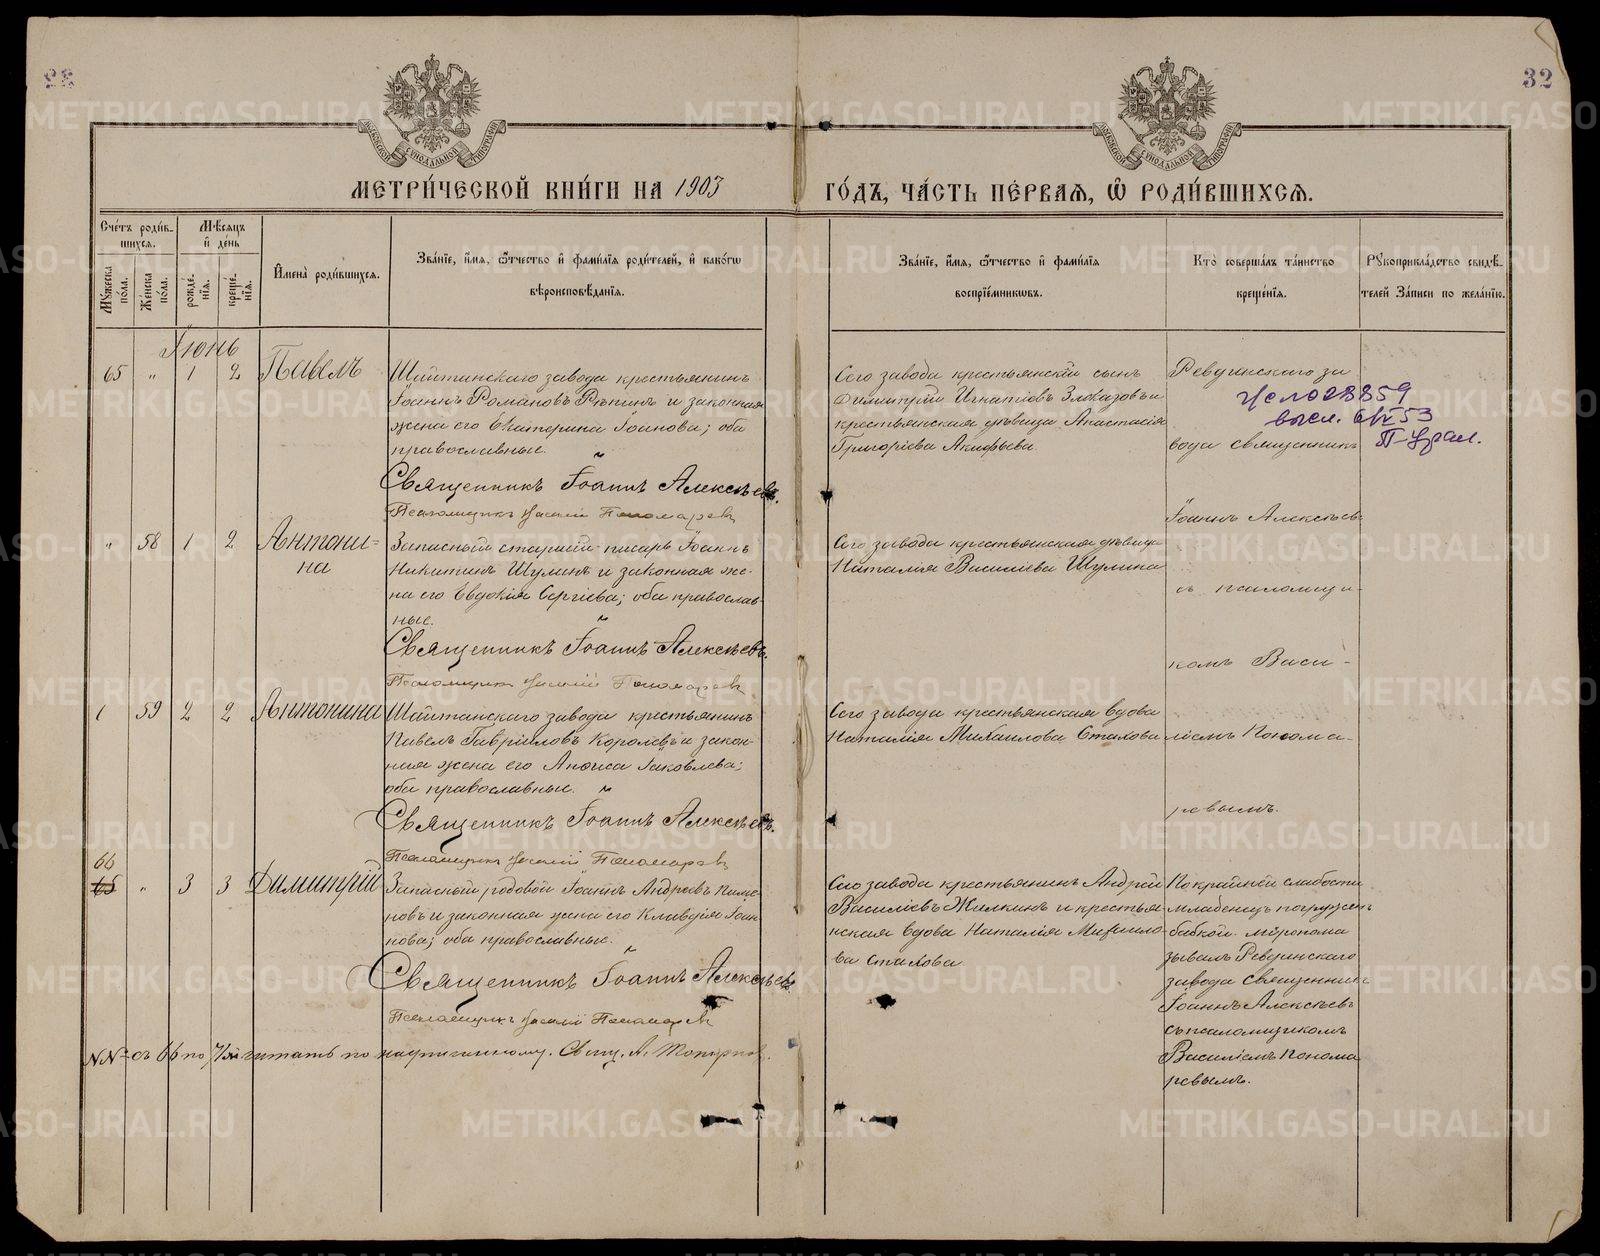 32
МЕТРИ́ЧЕСКОЙ КНИ́ГИ НА 1903 ГО́ДЪ, ЧА́СТЬ ПЕ́РВАЯ, Ѡ҆ РОДИ́ВШИХСѦ.
МОСКОВСКОЙ СѴНОДАЛЬНОЙ ТИПОГРАФІИ
МОСКОВСКОЙ СѴНОДАЛЬНОЙ ТИПОГРАФІИ
Сче́тъ роди́в-
шихся.
Мѣ́сяцъ
и҆ де́нь
Му́жеска
по́ла.
Же́нска
по́ла.
рожде́-
нїя.
креще́-
нїя.
И҆мена̀ роди́вшихся.
Зва́нїе, и҆́мя, ѻ҆́тчество и҆ фами́лїя роди́телей, и҆ како́гѡ
вѣроисповѣ́данїя.
Зва́нїе, и҆́мя, ѻ҆́тчество и҆ фами́лїя
воспрїе́мникѡвъ.
Кто̀ соверша́лъ та́инство
креще́нїя.
Рꙋкоприкла́дство свидѣ́-
телей за́писи по жела́нїю.
Іюнь
65 " 1 2 Павелъ
Шайтанскаго завода крестьянинъ
Іоаннъ Романовъ Рѣпинъ и законная
жена его Екатерина Іоанова; оба
православные.
Священникъ Іоаннъ Алексѣевъ.
Псаломщикъ Василій Пономаревъ
Сего завода крестьянскій сынъ
Димитрій Игнатіевъ Злоказовъ и
крестьянская дѣвица Анастасія
Григоріева Акифьева.
Ревдинскаго за
вода священникъ
Іоаннъ Алексѣевъ
съ псаломщи-
комъ Васи-
ліемъ Понома-
ревымъ.
высл. 53
" 58 1 2 Антони-
на
Запасный старшій писарь Іоаннъ
Никитинъ Шулинъ и законная же-
на его Евдокія Сергіева; оба православ-
ные.
Священникъ Іоаннъ Алексѣевъ.
Псаломщикъ Василій Пономаревъ
Сего завода крестьянская дѣвица
Наталія Василіева Шулина
59 2 2 Антонина
Шайтанскаго завода крестьянинъ
Павелъ Гавріиловъ Королевъ и закон-
ная жена его Анфиса Іаковлева;
оба православные.
Священникъ Іоаннъ Алексѣевъ.
Псаломщикъ Василій Пономаревъ
Сего завода крестьянская вдова
Наталія Михаилова Стахова
66
65 " 3 3 Димитрій
Запасный рядовой Іоаннъ Андреевъ Пиме-
новъ и законная жена его Клавдія Іоан-
нова; оба православные.
Священникъ Іоаннъ Алексѣевъ.
Псаломщикъ Василій Пономаревъ
Сего завода крестьянинъ Андрей
Василіевъ Жилкинъ и крестья-
нская вдова Наталія Михаило-
ва Стахова
По крайней слабости
младенецъ погруженъ
бабкой. Мѵропома
зывалъ Ревдинскаго
завода священникъ
Іоаннъ Алексѣевъ
съ псаломщикомъ
Василіемъ Понома
ревымъ.
NN съ 66 по читать по надписанному. Свящ. А. Топорковъ.